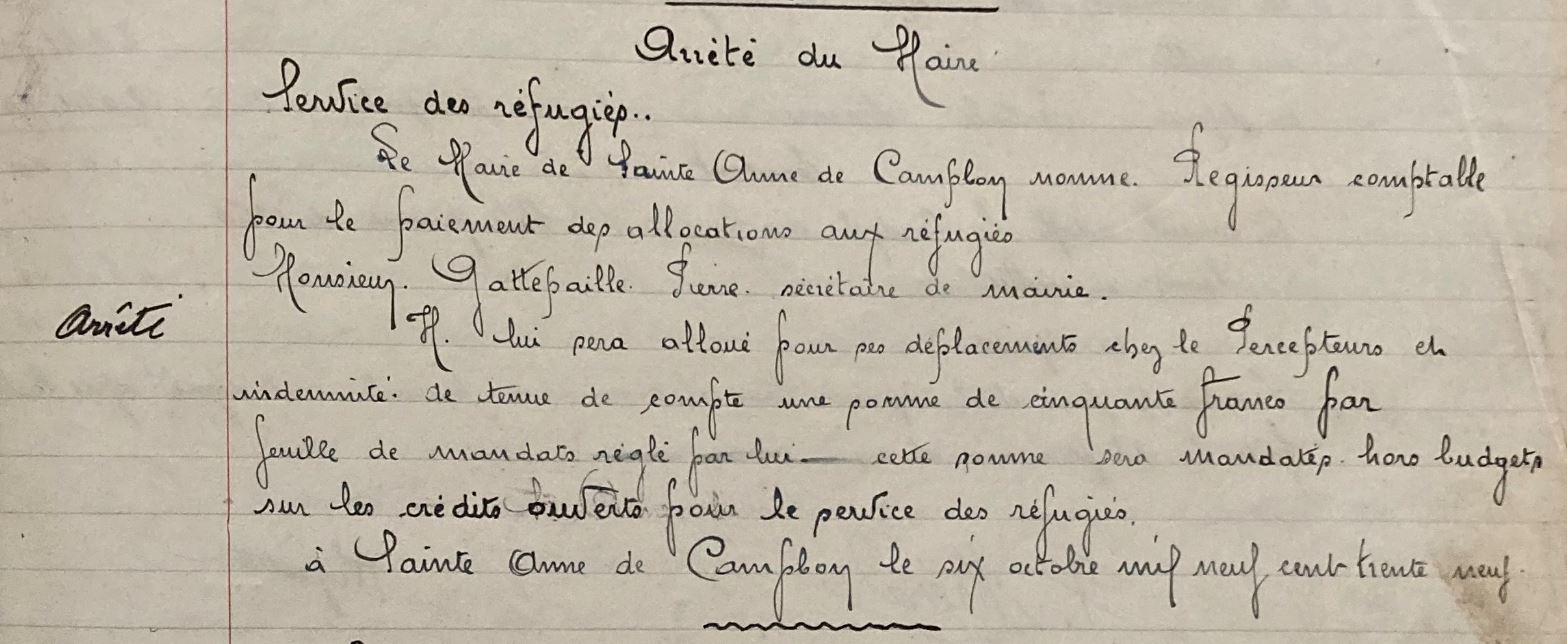 Arrêté du Maire
Service des réfugiés..
Le Maire de Sainte Anne de Campbon nomme. Régisseur comptable
pour le paiement des allocations aux réfugiés
Monsieur. Gattepaille. Pierre. sécrétaire de mairie.
Arrêté
Il lui sera alloué pour ses déplacements chez le Percepteurs et
indemnité. de tenue de compte une somme de cinquante francs par
feuille de mandats réglé par lui — cette somme sera mandatés. hors budgets
sur les crédits ouverts pour le service des réfugiés.
à Sainte Anne de Campbon le six octobre mil neuf cent trente neuf.